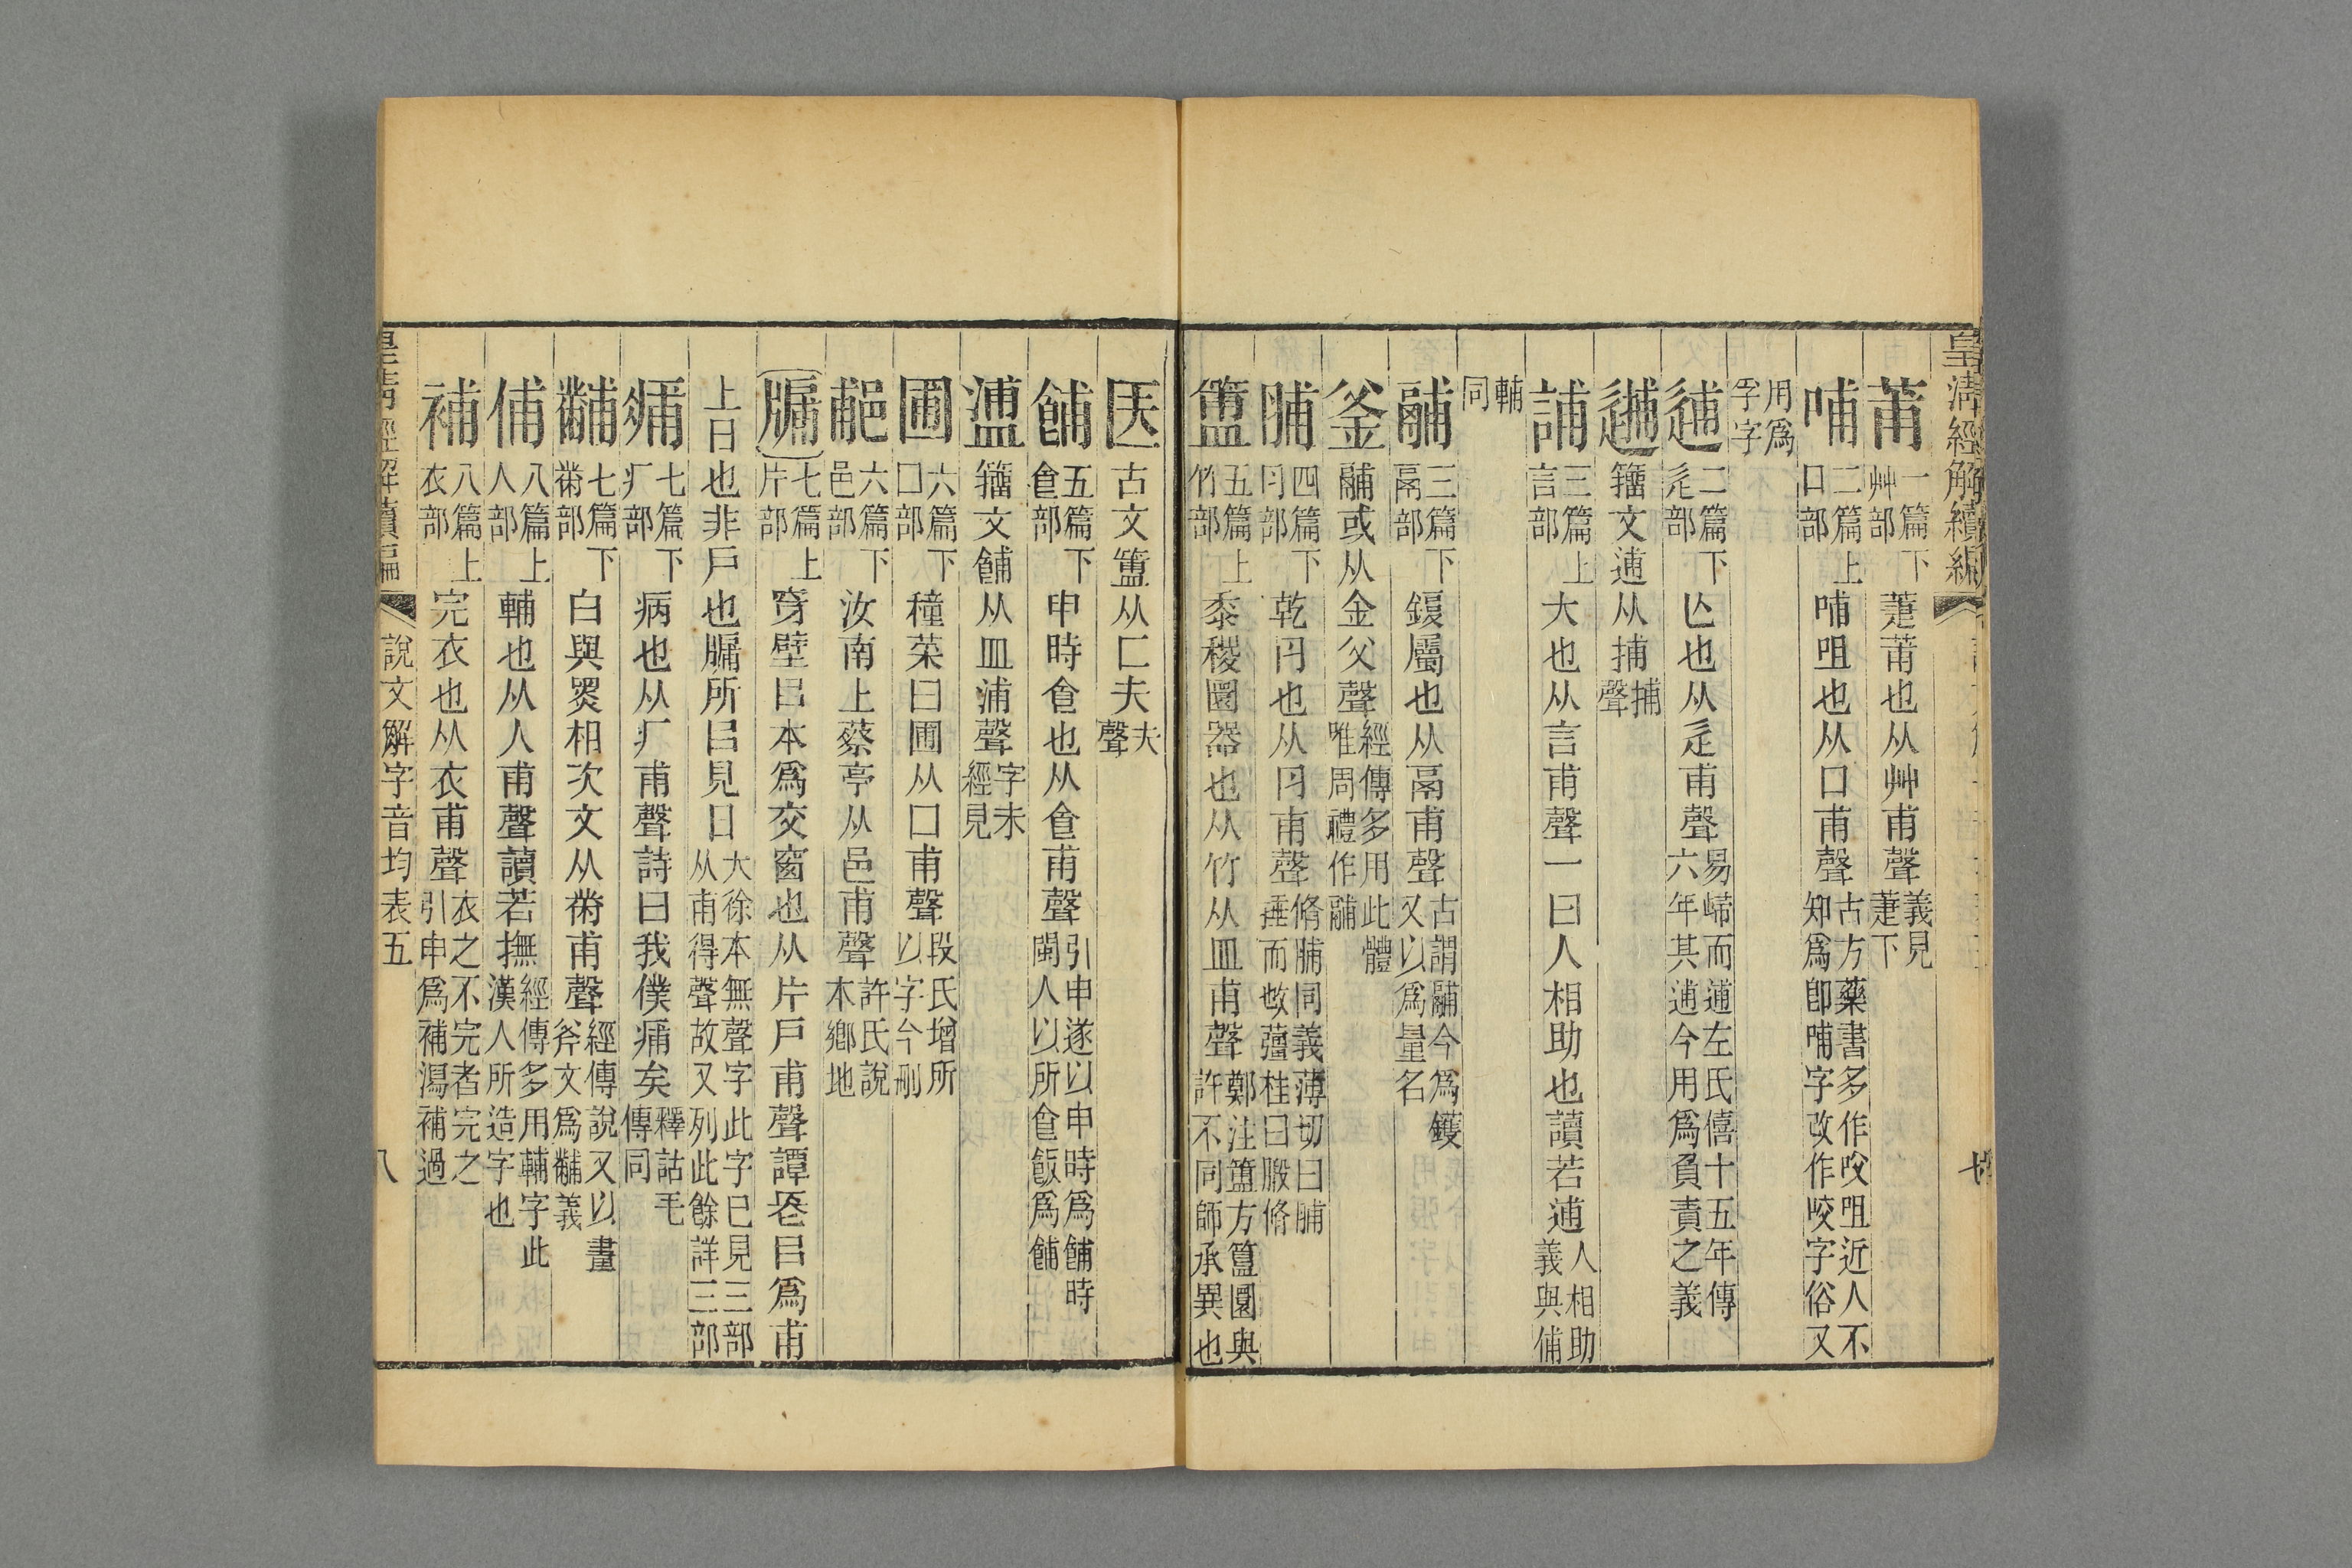 皇淸經解續編
莆一篇下艸部萐莆也从艸甫聲義見萐下
哺二篇上口部哺咀也从口甫聲古方藥書多作㕮咀近人不知爲卽哺字改作咬字俗又
用爲字字
逋二篇下辵部亡也从辵甫聲易歸而逋左氏僖十五年傳六年其逋今用爲負責之義
逋籒文逋从捕捕聲
誧三篇上言部大也从言甫聲一曰人相助也讀若逋人相助義與俌
同輔
鬴三篇下鬲部鍑屬也从鬲甫聲古謂鬴今爲鑊又以爲量名
釜鬴或从金父聲經傳多用此體唯周禮作鬴
脯四篇下肉部乾肉也从肉甫聲脩脯同義薄切曰脯捶而施薑桂曰腶脩
簠五篇上竹部黍稷圜器也从竹从皿甫聲鄭注簠方簋圜與許不同師承異也
医古文簠从匚夫夫聲
餔五篇下食部申時食也从食甫聲引申遂以申時爲餔時閩人以所食飯爲餔
盙籒文餔从皿浦聲字未經見
圃六篇下囗部穜菜曰圃从囗甫聲段氏增所以字今刪
郙六篇下邑部汝南上蔡亭从邑甫聲許氏說本鄉地
牖七篇上片部穿壁㠯木爲交窗也从片戶甫聲譚長㠯爲甫
上日也非戶也牖所㠯見日大徐本無聲字此字已見三部从甫得聲故又列此餘詳三部
痡七篇下疒部病也从疒甫聲詩曰我僕痡矣釋詁毛傳同
黼七篇下黹部白與黑相次文从黹甫聲經傳說又以畫斧文爲黼義
俌八篇上人部輔也从人甫聲讀若撫經傳多用輔字此漢人所造字也
補八篇上衣部完衣也从衣甫聲衣之不完者完之引申爲補潟補過
皇淸經解續編 說文解字音均表五 八